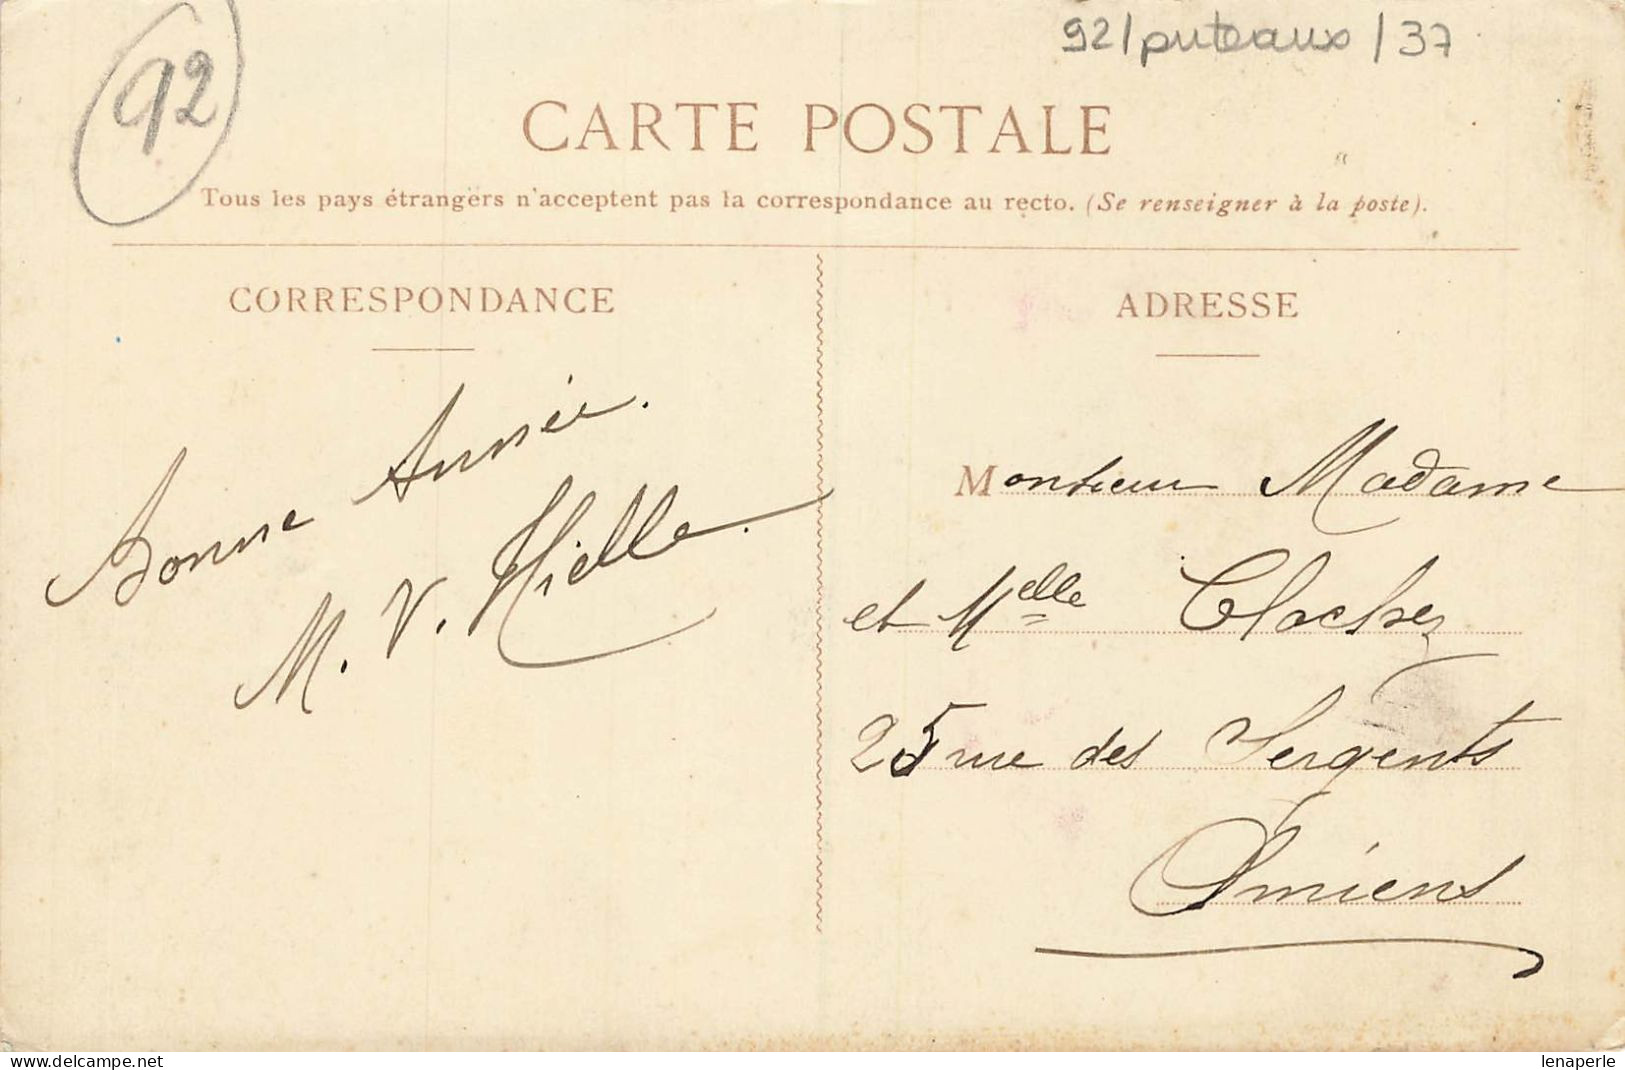 92
92/puteaux/37
CARTE POSTALE
Tous les pays étrangers n'acceptent pas la correspondance au recto. (Se renseigner à la poste).
CORRESPONDANCE
Bonne Année.
M. V. Hielle.
ADRESSE
Monsieur Madame
et Melle Clachez
25 rue des Sergents
Amiens
https://www.delcampe.net
lenaperle